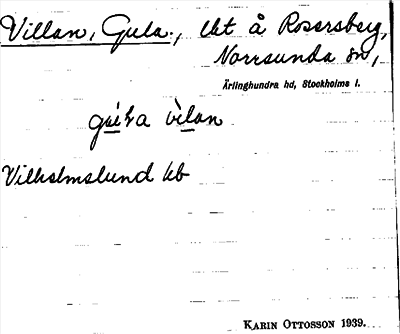 Villan, Gula., lht å Rosersberg,
Norrsunda sn,
Ärlinghundra hd, Stockholms l.
vilan
Vilhelmslund lb
KARIN OTTOSSON 1939.